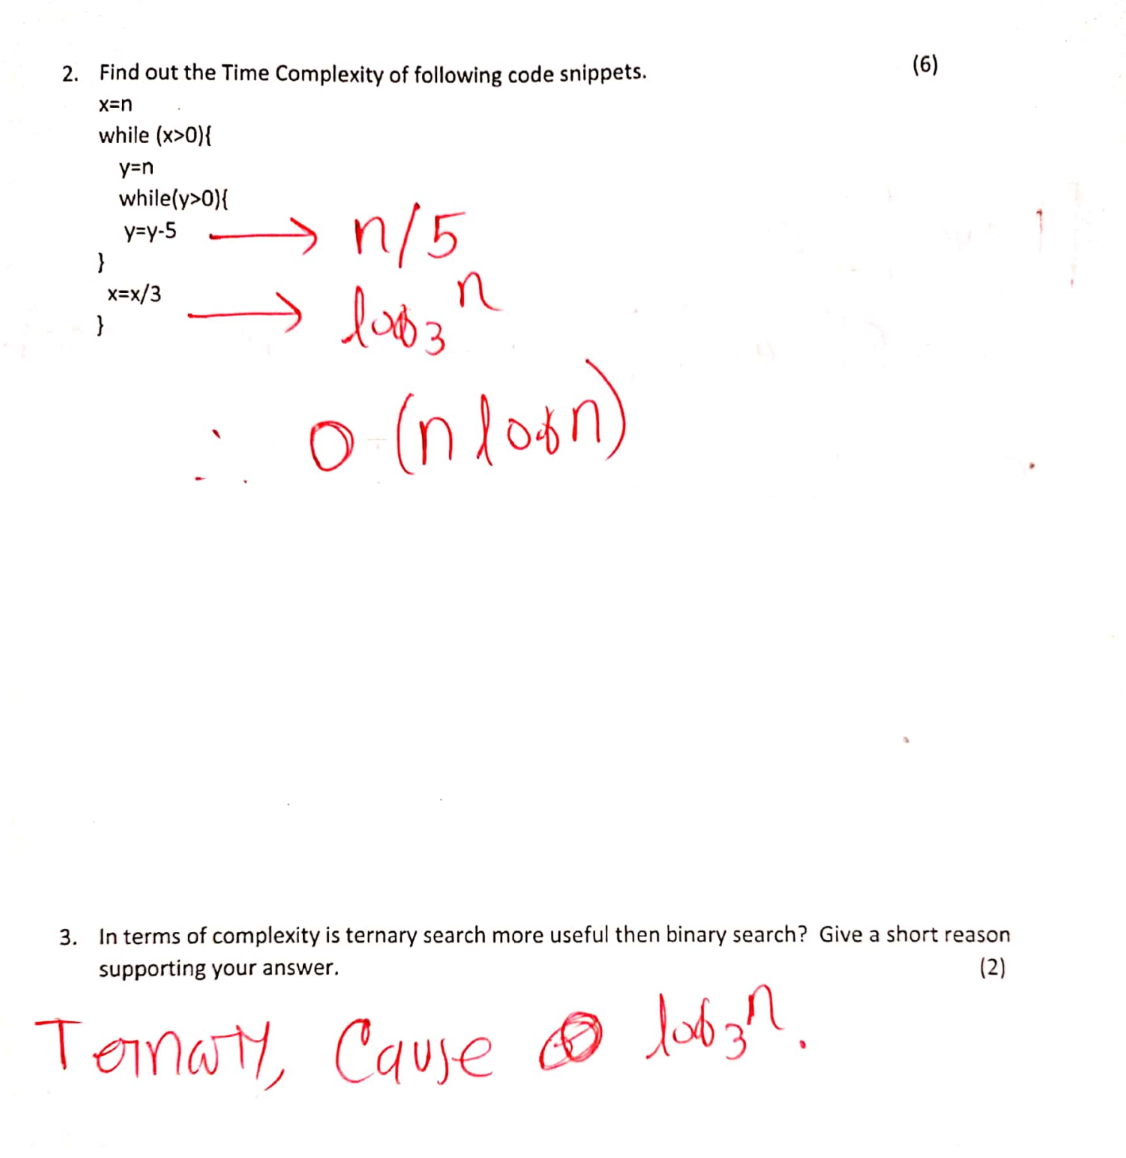 2. Find out the Time Complexity of following code snippets. (6)
x=n
while (x>0){
y=n
while(y>0){
y=y-5 → n/5
}
x=x/3 → log₃ n
}
∴ O (n log n)
3. In terms of complexity is ternary search more useful then binary search? Give a short reason
supporting your answer. (2)
Ternary, Cause log₃n.